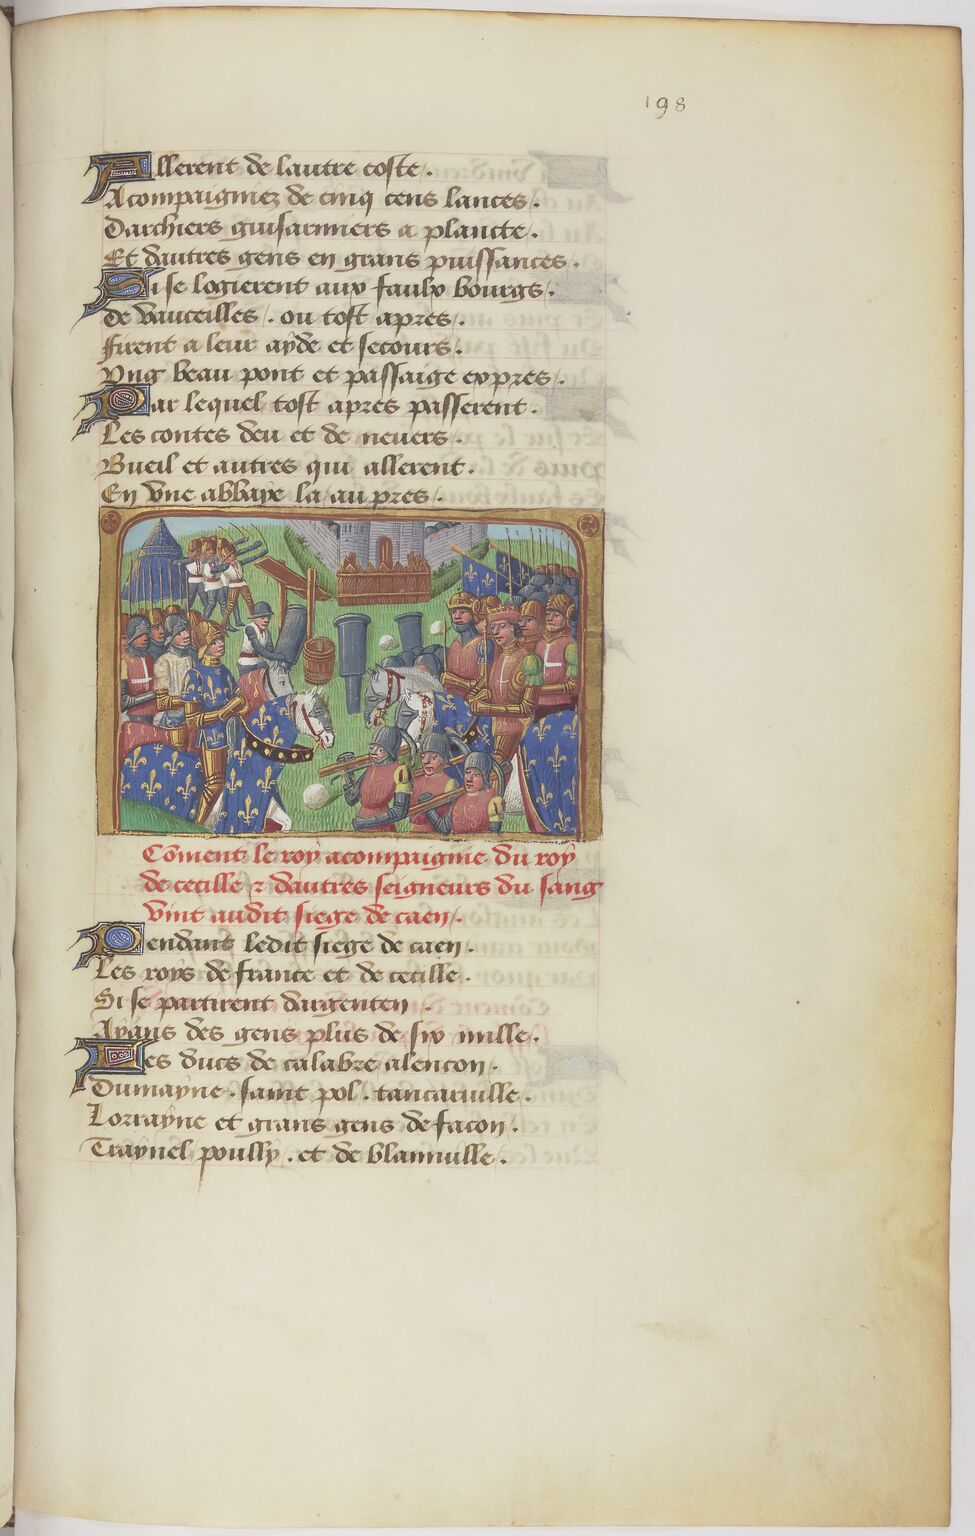 198
Allerent de lautre coste.
Acompaigniez de cinq cens lances.
Darchiers guisarmiers a plante.
Et dautres gens en grans puissances.
Si se logierent aux faulx bourgs.
De vauceilles. ou tost apres.
Firent a leur ayde et secours.
Vng beau pont et passaige expres.
Par lequel tost apres passerent.
Les contes deu et de neuers.
Bueil et autres qui allerent.
En vne abbaye la au pres.
Cõment le roy acompaignie du roy
de cecille ⁊ dautres seigneurs du sang
vint audit siege de caen.
Pendant ledit siege de caen.
Les roys de france et de cecille.
Si se partirent dargenten.
Ayans des gens plus de six mille.
Les ducs de calabre alencon.
Dumayne. saint pol. tancaruille.
Lorrayne et grans gens de facon.
Traynel poully. et de blainuille.